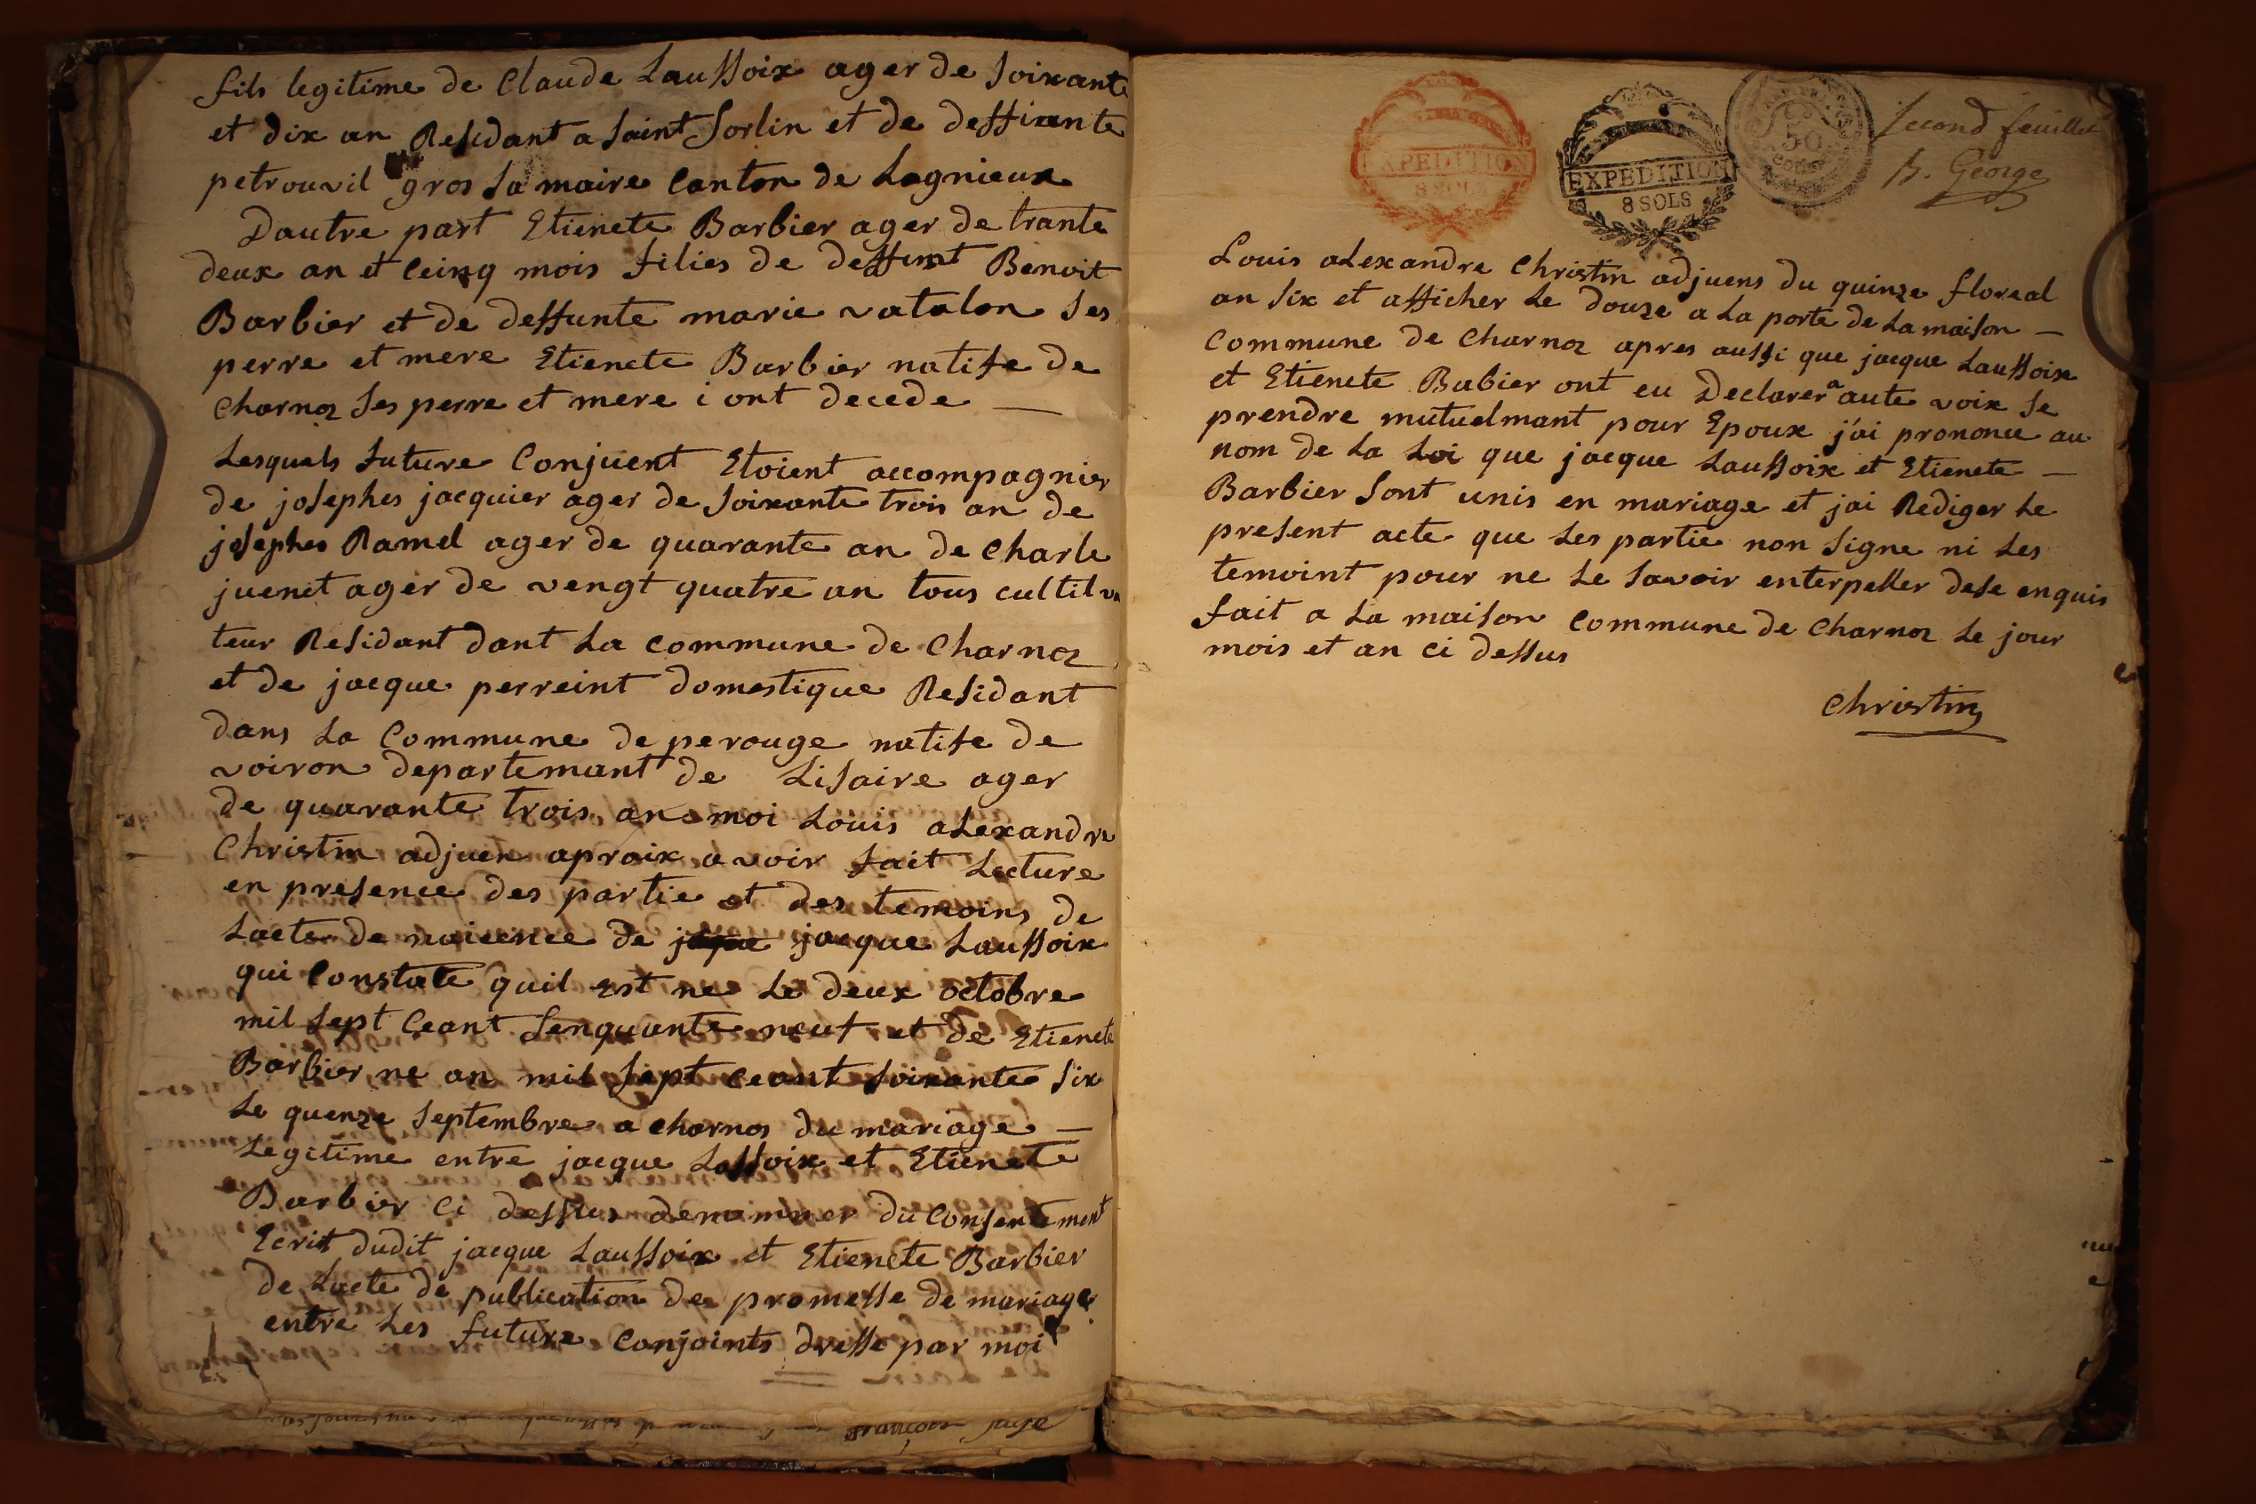 fils legitime de Claude Laussoix ager de soixante
et dix an Residant a saint Sorlin et de deffunte
petrouvil gros sa maire canton de Lagnieux
Dautre part Etienete Barbier ager de trante
deux an et ceinq mois filies de deffunt Benoit
Barbier et de deffunte marie vatalon ses
perre et mere Etienete Barbier natife de
Charnoz ses perre et mere i ont decede —
Lesquels future Conjuent Etoient accompagnier
de josephes jacquier ager de soixante trois an de
josephes Ramel ager de quarante an de Charle
juenet ager de vengt quatre an tous cultitva
teur Residant dant La commune de Charnoz
et de jacque perreint domestique Residant
dans La Commune de perouge natife de
voiron departemant de Lisaire ager
de quarante trois an moi Louis aLexandre
Christin adjuen aproix avoir fait Lecture
en presence des partie et des temoins de
Lacte de naicence de jacque Laussoix
qui Constate quil est ne Le deux octobre
mil sept Ceant senquante neuf et de Etienete
Barbier ne an mil sept ceant soixante six
Le quenze septembre a Charnos du mariage —
Legitime entre jacque Lassoix et Etienete
Barbier ci dessus denommer du Consentement
Ecrit dudit jacque Laussoix et Etienete Barbier
de Lacte de publication de promesse de mariage
entre Les future conjoints dresse par moi
françois
EXPEDITION
8 SOLS
EXPEDITION
8 SOLS
50
Second feuillet
B. George
Louis aLexandre Christin adjuens du quinze floreal
an six et afficher Le douze a La porte de La maison —
Commune de Charnoz apres aussi que jacque Laussoix
et Etienete Babier ont eu Declarer a aute voix se
prendre mutuelmant pour Epoux j'ai prononce au
nom de La Loi que jacque Laussoix et Etienete —
Barbier sont unis en mariage et jai Rediger Le
present acte que Les partie non signe ni Les
temoint pour ne Le savoir enterpeller dese enquis
fait a La maison Commune de Charnoz Le jour
mois et an ci dessus
Christin